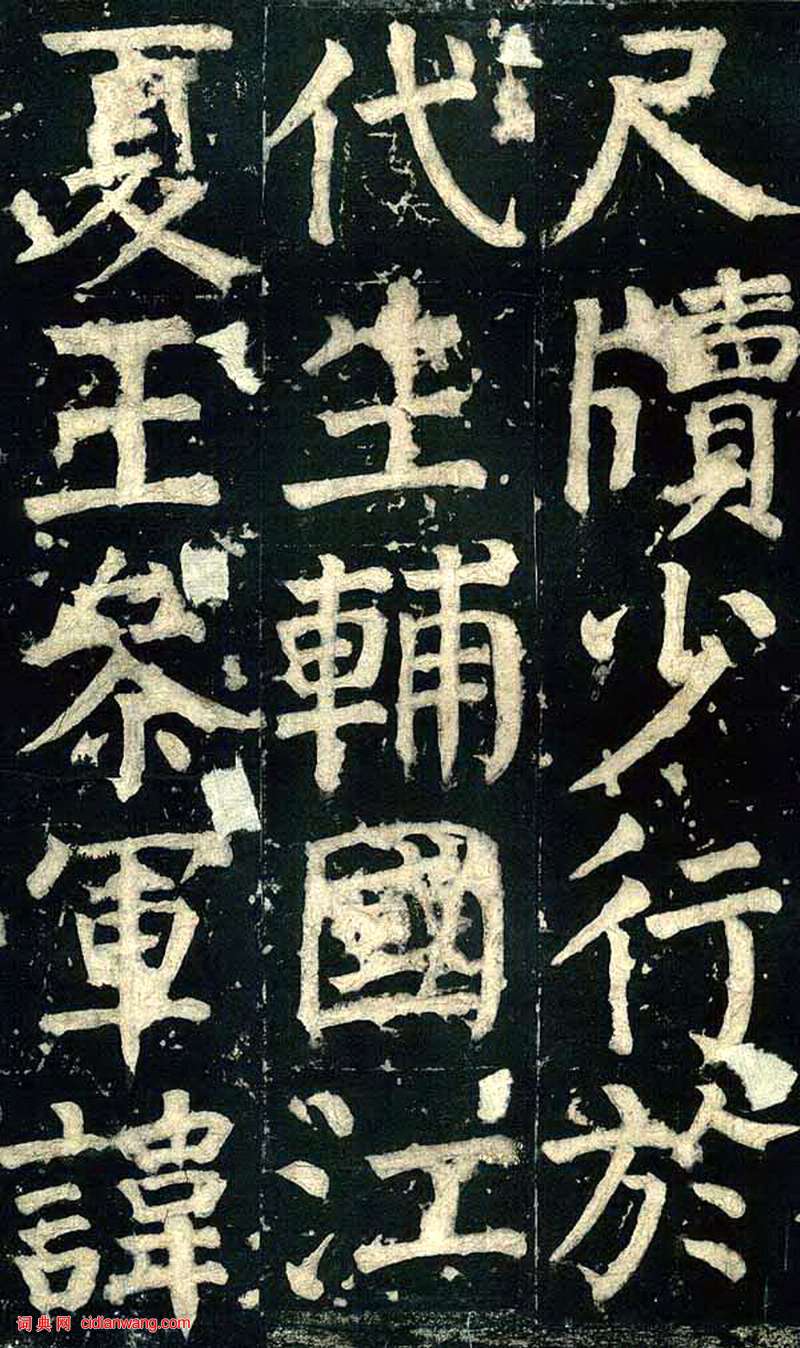 尺牘少行於
代生輔國江
夏王參軍諱
词典网 cidianwang.com